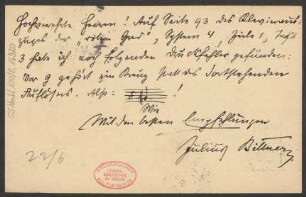 Hochverehrte Herren! Auf Seite 93 des Klavieraus-
zuges der "roten Gred" System 4, Zeile 1, Takt
3 habe ich noch folgenden Druckfehler gefunden:
Vor g gehört ein Kreuz statt des dortstehenden
Auflösers. Also:
Wie
Mit den besten Empfehlungen
Julius Bittner
22/6